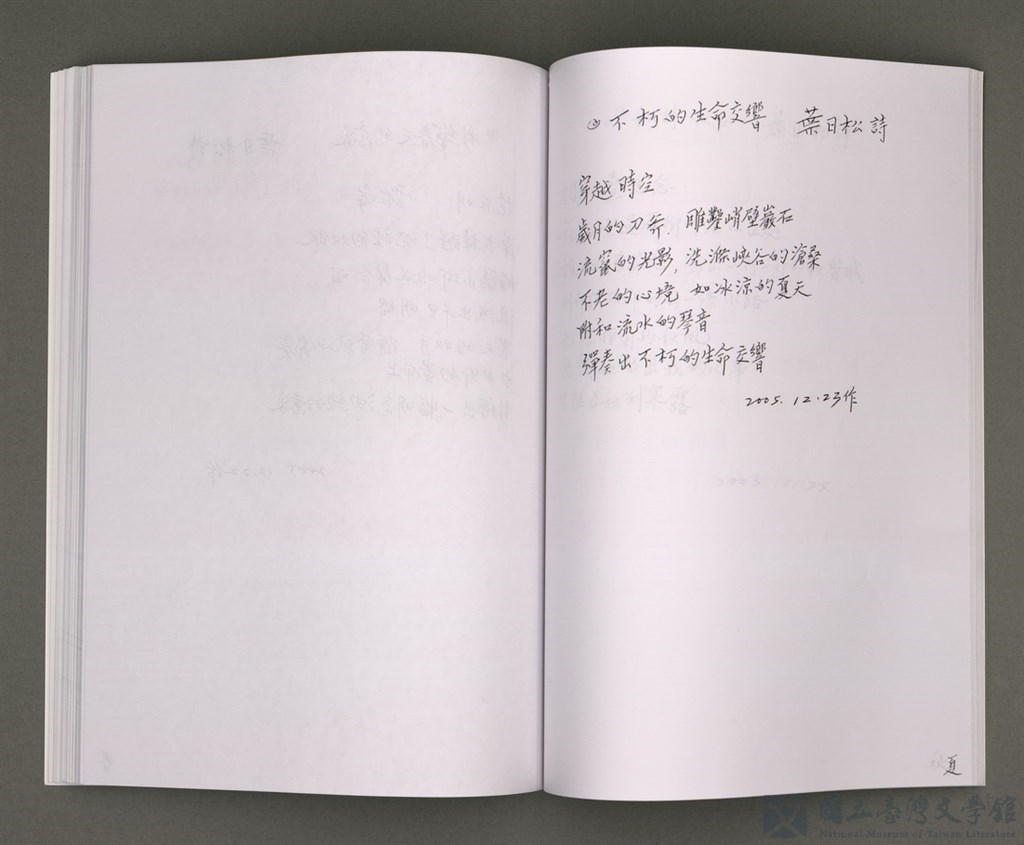 ② 不朽的生命交響 葉日松詩
穿越時空
歲月的刀斧 雕鑿峭壁巖石
流竄的光影,洗滌峽谷的滄桑
不老的心境 如冰涼的夏天
附和流水的琴音
彈奏出不朽的生命交響
2005.12.23作
夏
國立臺灣文學館
National Museum of Taiwan Literature